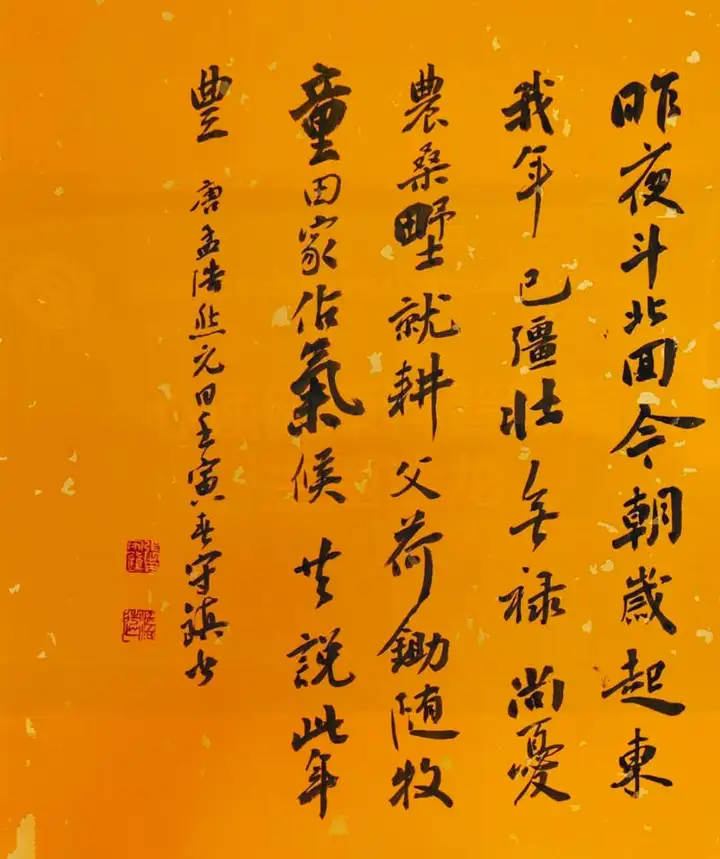 昨夜斗北回今朝歲起東
我年已彊壯無祿尚憂
農桑野就耕父荷鋤随牧
童田家佔氣候共説此年
豊 唐孟浩然元日壬寅春守鎮书